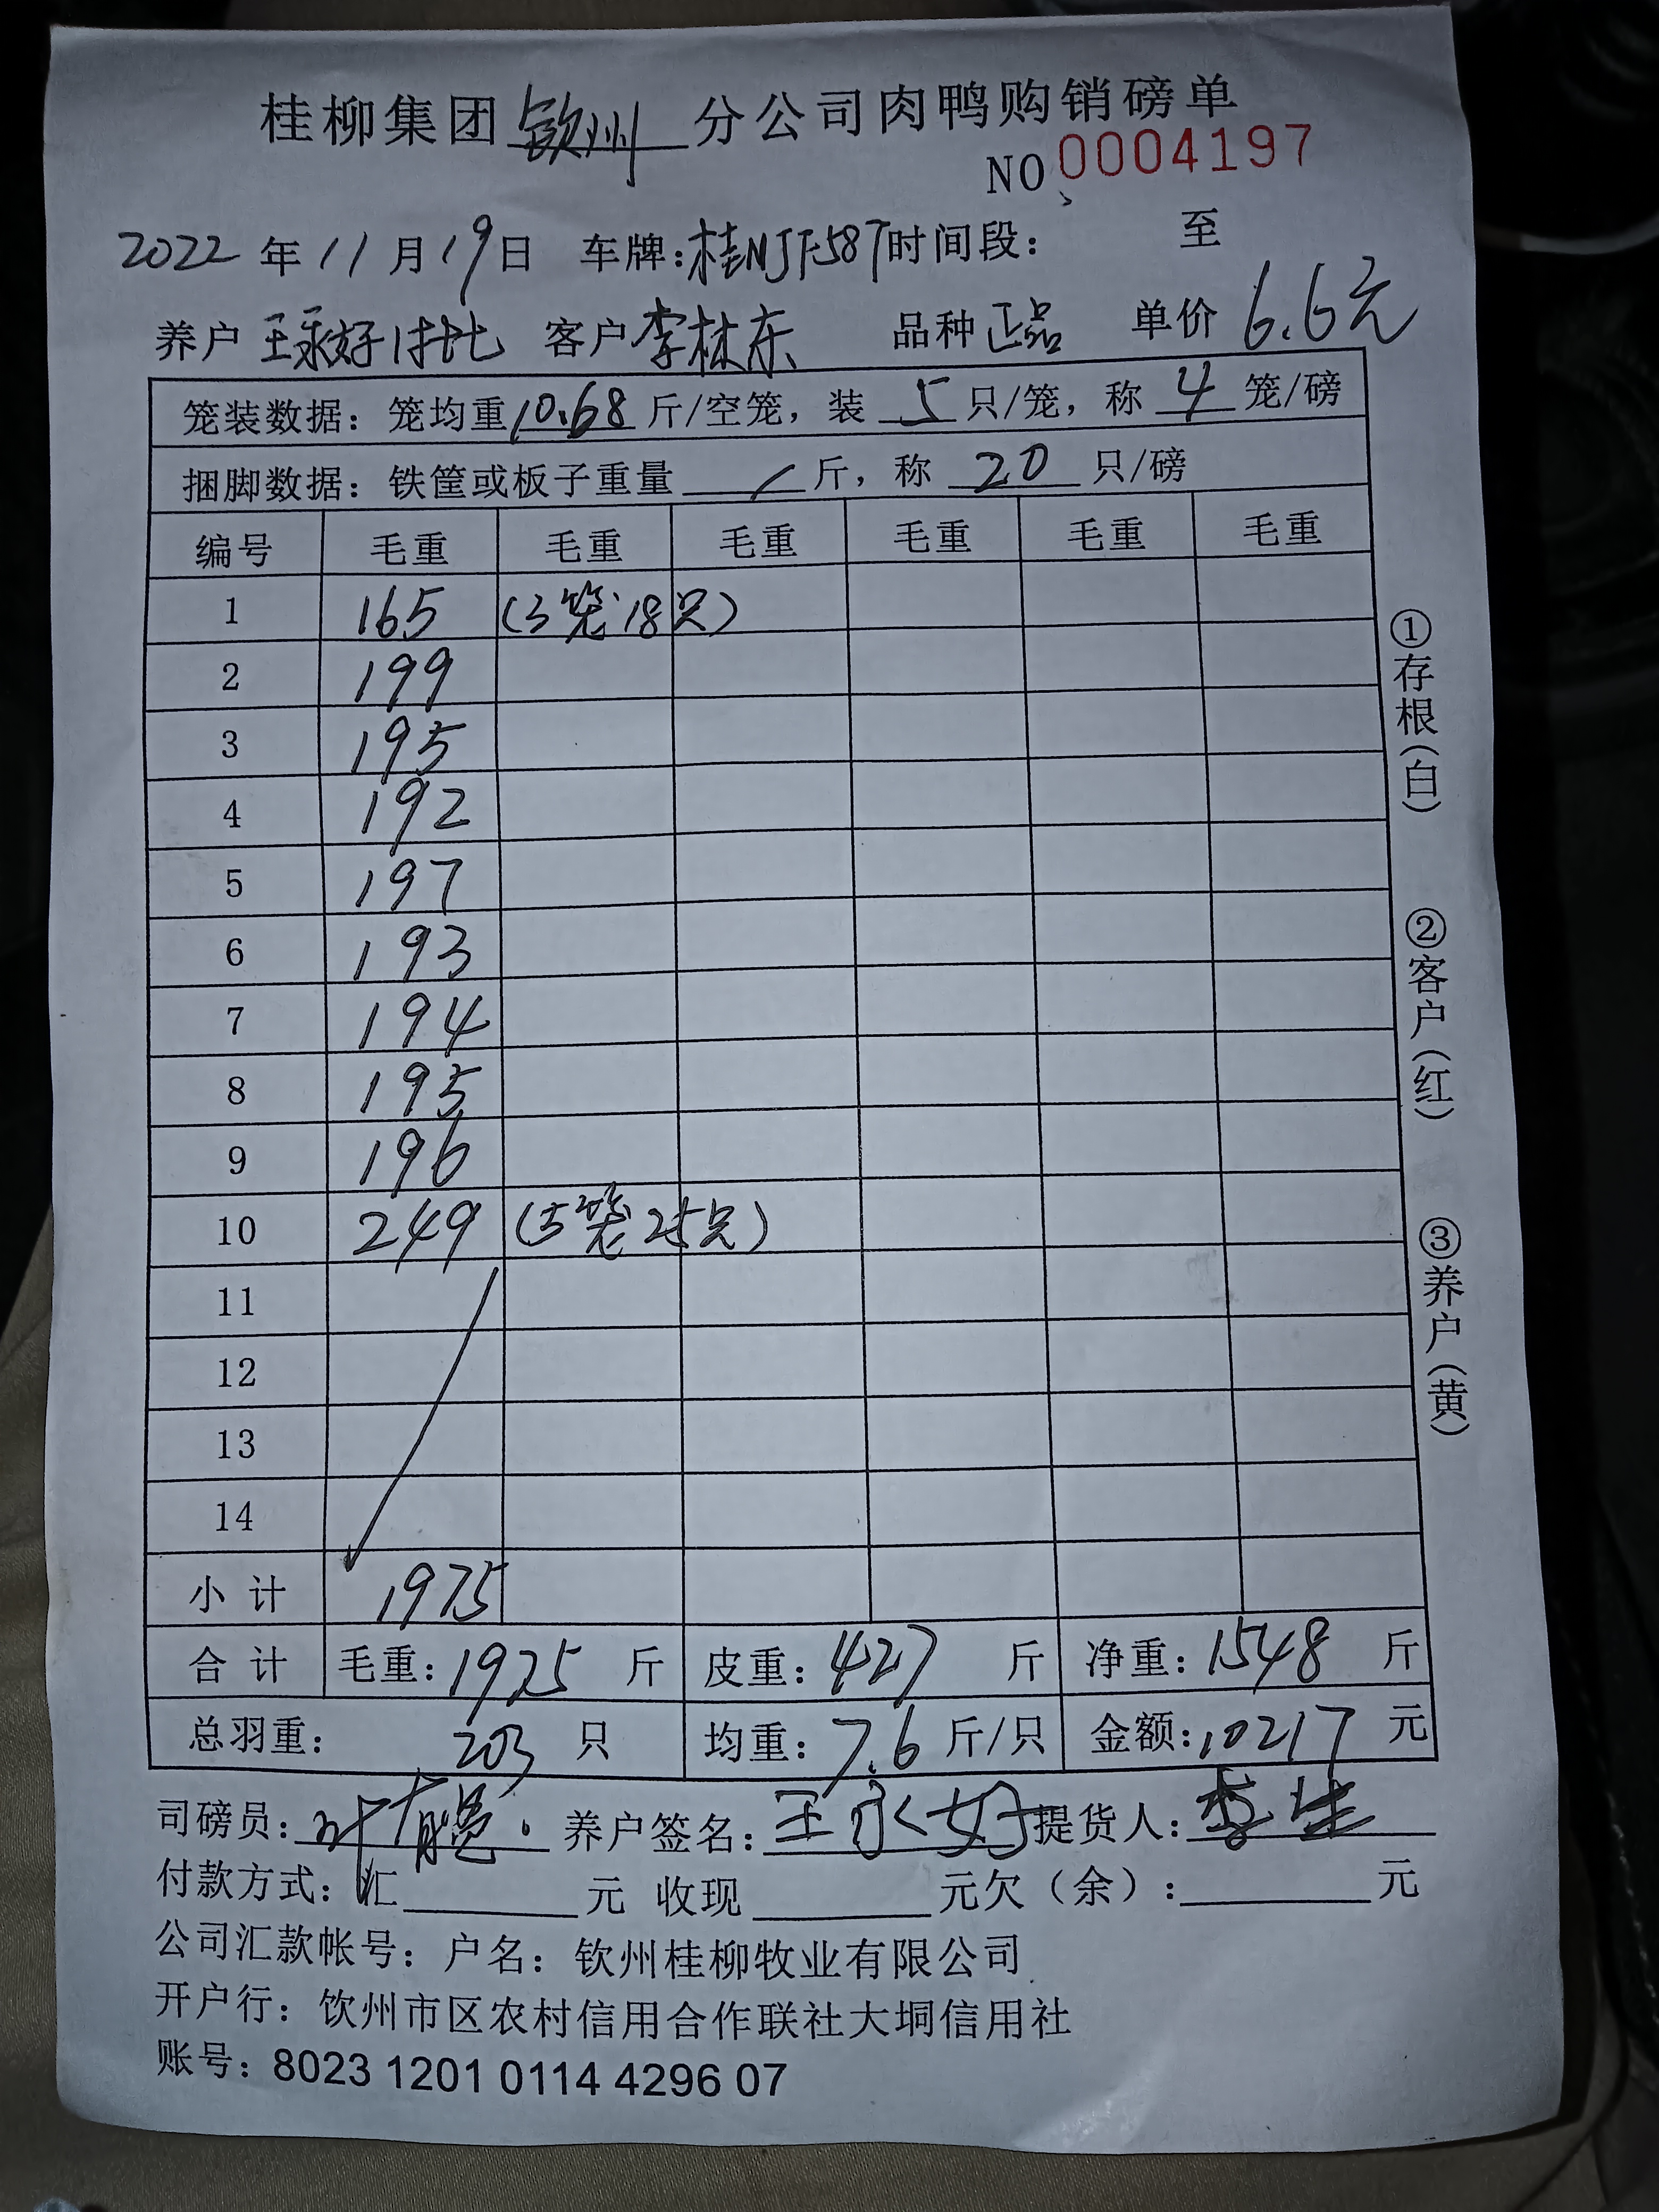 桂柳集团钦州分公司肉鸭购销磅单
NO 0004197
2022年11月19日 车牌:桂NJF587时间段: 至
养户 王永好 客户 李林东 品种 正品 单价 6.6元
笼装数据: 笼均重10.68斤/空笼, 装 5 只/笼, 称 4 笼/磅
捆脚数据: 铁筐或板子重量 / 斤, 称 20 只/磅
编号 毛重 毛重 毛重 毛重 毛重 毛重
1 165 (3笼18只)
2 199
3 195
4 192
5 197
6 193
7 194
8 195
9 196
10 249 (5笼25只)
11
12
13
14
小计 1975
合计 毛重: 1975 斤 皮重: 427 斤 净重: 1548 斤
总羽重: 203 只 均重: 7.6 斤/只 金额: 10217 元
司磅员: 叶有 养户签名: 王永好 提货人: 李生
付款方式: 汇 元 收现 元欠（余）: 元
公司汇款帐号: 户名: 钦州桂柳牧业有限公司
开户行: 钦州市区农村信用合作联社大垌信用社
账号: 8023 1201 0114 4296 07
①存根(白)
②客户(红)
③养户(黄)